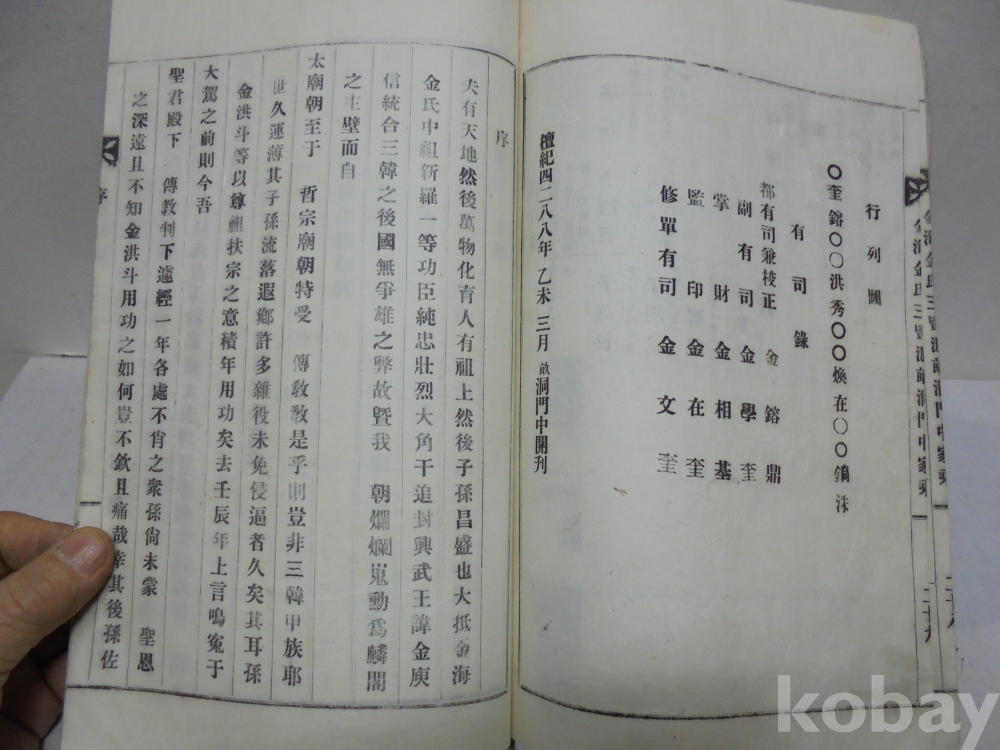 行列圖
○奎鎔○○洪秀○○煥在○○○鎬洙
有司錄
都有司兼校正 金鎔鼎
副有司 金學奎
掌財 金相基
監印 金在奎
修單有司 金文奎
檀紀四二八八年 乙未 三月 畝洞門中開刊
序
夫有天地然後萬物化育人有祖上然後子孫昌盛也大抵金海
金氏中祖新羅一等功臣純忠壯烈大角干追封興武王諱金庾
信統合三韓之後國無爭雄之弊故曁我 朝爛爛嵬勳爲麟閣
之主壁而自
太廟朝至于 哲宗廟朝特受 傳敎敎是乎則豈非三韓甲族耶
世久運薄其子孫流落遐鄉許多雜役未免侵逼者久矣其耳孫
金洪斗等以尊祖扶宗之意積年用功矣去壬辰年上言鳴冤于
大駕之前則今吾
聖君殿下 傳教判下遽經一年各處不肖之衆孫尙未蒙 聖恩
之深遠且不知金洪斗用功之如何豈不欽且痛哉幸其後孫佐
序
金海金氏三賢派畝洞門中家乘
kobay